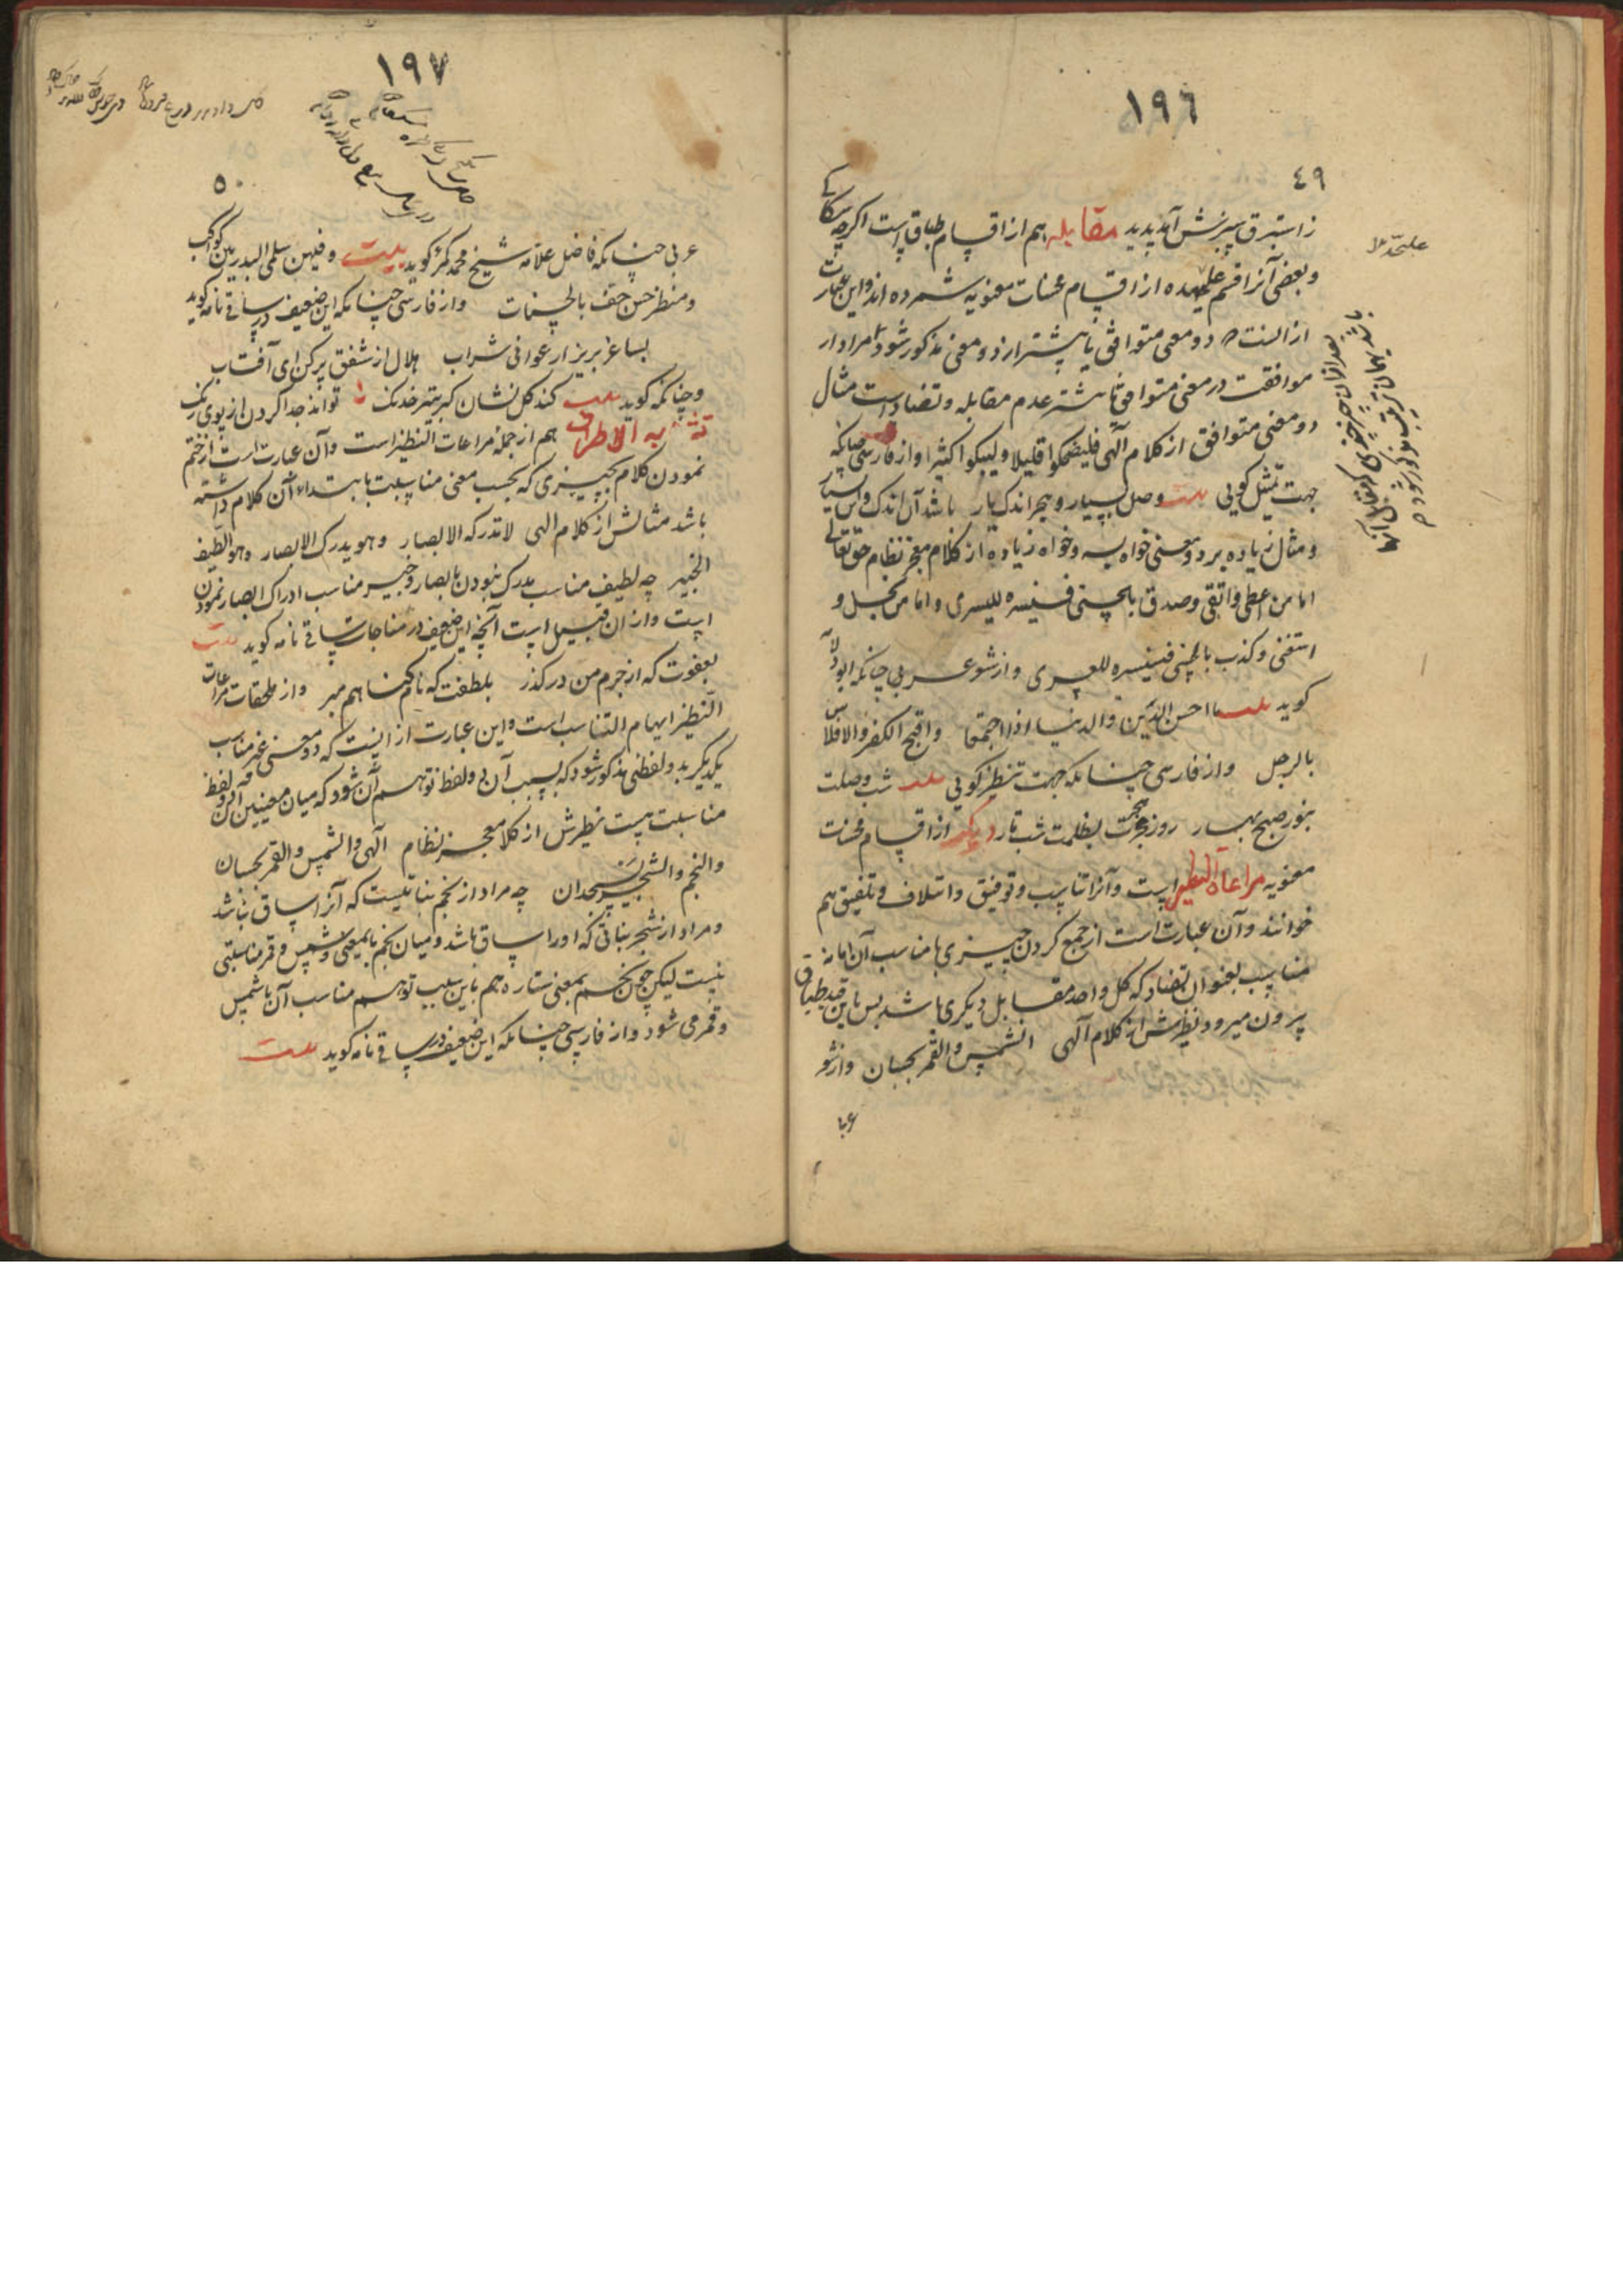 ١٩٦
٤٩
ز استبرق سبزش آمد پدید مقابله هم از اقسام طباقست اگرچه سکاکی
و بعضی آنرا قسم علیحده از اقسام محسنات معنویه شمرده اند و این عبارت
از آنست که دو معنی متوافق یا پیشتر از دو معنی مذکور شود و مراد از
موافقت در معنی متوافق یا پیشتر عدم مقابله و تضاد است مثال
دو معنی متوافق از کلام آلهی فلیضحکوا قلیلا ولیبکوا کثیرا و از فارسی چنانکه
جهت تمثیل گویی بیت وصل بسیار و هجر اندک یار باشد آن اندک و این بسیار
و مثال زیاده بر دو معنی خواه سه و خواه زیاده از کلام معجز نظام حق تعالی
اما من اعطی واتقی وصدق بالحسنی فسنیسره للیسری واما من بخل و
استغنی وکذب بالحسنی فسنیسره للعسری و از شعر عربی چنانکه ابودلامه
گوید بیت ما احسن الدین والدنیا اذا اجتمعا واقبح الکفر والافلاس
بالرجل و از فارسی چنانکه جهت تنظیر گویی بیت شب وصلت
بنور صبح بهار روز هجرت بظلمت شب تار دیگر از اقسام محسنات
معنویه مراعاة النظیر است و آنرا تناسب و توفیق و ائتلاف و تلفیق هم
خوانند و آن عبارت است از جمع کردن چیزی با مناسب آن اما نه
مناسب بعنوان تضاد که کل واحد مقابل دیگری باشد پس باین قید طباق
بیرون میرود نظیرش از کلام آلهی الشمس والقمر بحسبان و از شعر
باشد بعد از آن چیزی چندی که مقابل آنها
باشد بهمان ترتیب مذکور شود
١٩٧
٥٠
عربی چنانکه فاضل علامه شیخ محمد گوید بیت وفیهن سلمی البدر بین کواکب
ومنظر حسن حف بالحسنات و از فارسی چنانکه این ضعیف در ساقی نامه گوید
بساغر بریز ارغوانی شراب هلال از شفق پر کن ای آفتاب
و چنانکه گوید بیت کند گل نشان گر بتیر خدنک تواند جدا کردن از بوی رنک
تشابه الاطراف هم از جمله مراعات النظیر است و آن عبارت است از ختم
نمودن کلام بچیزی که بحسب معنی مناسبت با بتداء آن کلام داشته
باشد مثالش از کلام الهی لا تدرکه الابصار وهو یدرک الابصار وهو اللطیف
الخبیر چه لطیف مناسب مدرک نبودن بابصار و خبیر مناسب ادراک ابصار نمودن
است و از آن قبیل است آنچه این ضعیف در مناجات ساقی نامه گوید بیت
بعفوت که از جرم من در گذر بلطفت که نام گناهم مبر و از ملحقات مراعات
النظیر ایهام التناسب است و این عبارت از اینست که دو معنی غیر مناسب
یکدیگر بدو لفظی مذکور شود که بسبب آن دو لفظ توهم آن شود که میان معنیین آن دو لفظ
مناسبت هست نظیرش از کلام معجز نظام آلهی والشمس والقمر بحسبان
والنجم والشجر یسجدان چه مراد از نجم نباتیست که آنرا ساق نباشد
و مراد از شجر نباتی که او را ساق باشد و میان نجم باین معنی و شمس و قمر مناسبتی
نیست لیکن چون نجم بمعنی ستاره هم باین سبب توهم مناسب آن با شمس
و قمر می شود و از فارسی چنانکه این ضعیف در ساقی نامه گوید بیت